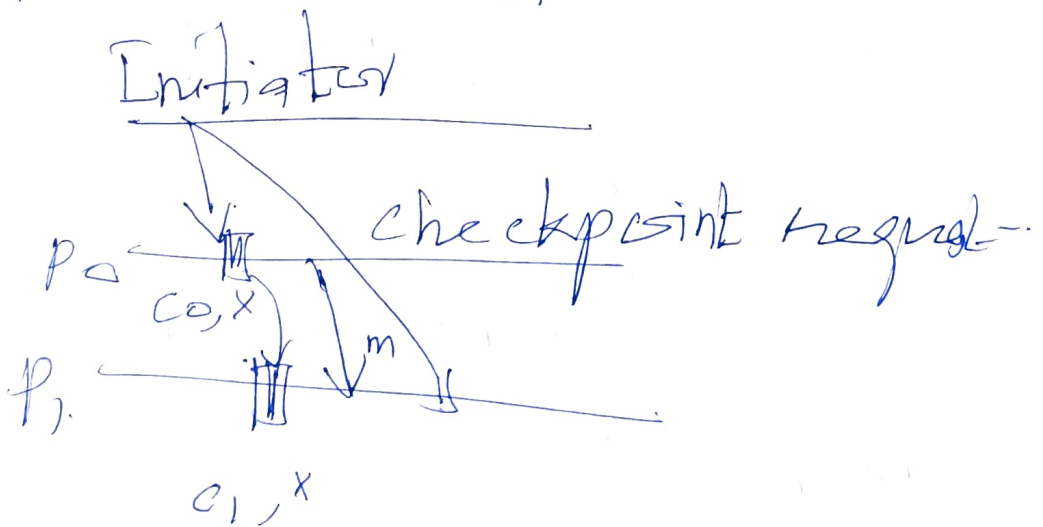 Initiator
checkpoint request
P0
C0,x
m
P1.
C1,x